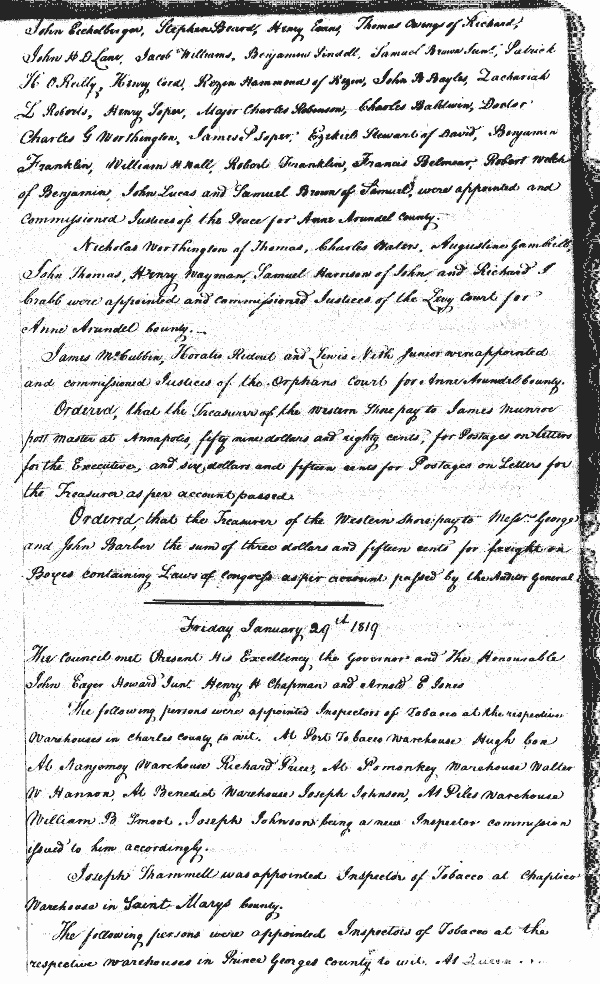 John Eichelberger, Stephen Beard, Henry Evans, Thomas Owings of Richard,
John H D Lane, Jacob Williams, Benjamin Lindell, Samuel Brown Junr, Patrick
H O.Reilly, Henry Cord, Rezin Hammond of Rezin, John B Bayles, Zachariah
L Roberts, Henry Soper, Major Charles Robinson, Charles Baldwin, Doctor
Charles G Worthington, James P Soper, Ezekiel Stewart of David, Benjamin
Franklin, William H Hall, Robert Franklin, Francis Belmear, Robert Welch
of Benjamin, John Lucas and Samuel Brown of Samuel, were appointed and
Commissioned Justices of the Peace for Anne Arundel County.
Nicholas Worthington of Thomas, Charles Waters, Augustine Gambrill,
John Thomas, Henry Wayman, Samuel Harrison of John and Richard J
Crabb were appointed and commissioned Justices of the Levy Court for
Anne Arundel County.
James McCubbin, Horatio Ridout and Lewis Neth Junior were appointed
and commissioned Justices of the Orphans Court for Anne Arundel County.
Ordered, that the Treasurer of the Western Shore pay to James Munroe
post master at Annapolis, fifty nine dollars and eighty cents, for Postages on letters
for the Executive, and six dollars and fifteen cents for Postages on Letters for
the Treasurer as per account passed
Ordered that the Treasurer of the Western Shore pay to Messrs George
and John Barber the sum of three dollars and fifteen cents for freight on
Boxes containing Laws of Congress as per account passed by the Auditor General
Friday January 29th 1819
The Council met Present His Excellency the Governor and The Honourable
John Eager Howard Junr Henry H Chapman and Arnold E Jones
The following persons were appointed Inspectors of Tobacco at the respective
Warehouses in Charles County to wit. At Port Tobacco Warehouse Hugh Cox
At Nanjemoy Warehouse Richard Price, At Pomonkey Warehouse Walter
W Hannon, At Benedict Warehouse Joseph Johnson, At Piles Warehouse
William B Smoot. Joseph Johnson being a new Inspector commission
issued to him accordingly.
Joseph Shammell was appointed Inspector of Tobacco at Chaptico
Warehouse in Saint Marys County.
The following persons were appointed Inspectors of Tobacco at the
respective warehouses in Prince Georges County to wit. At Queen